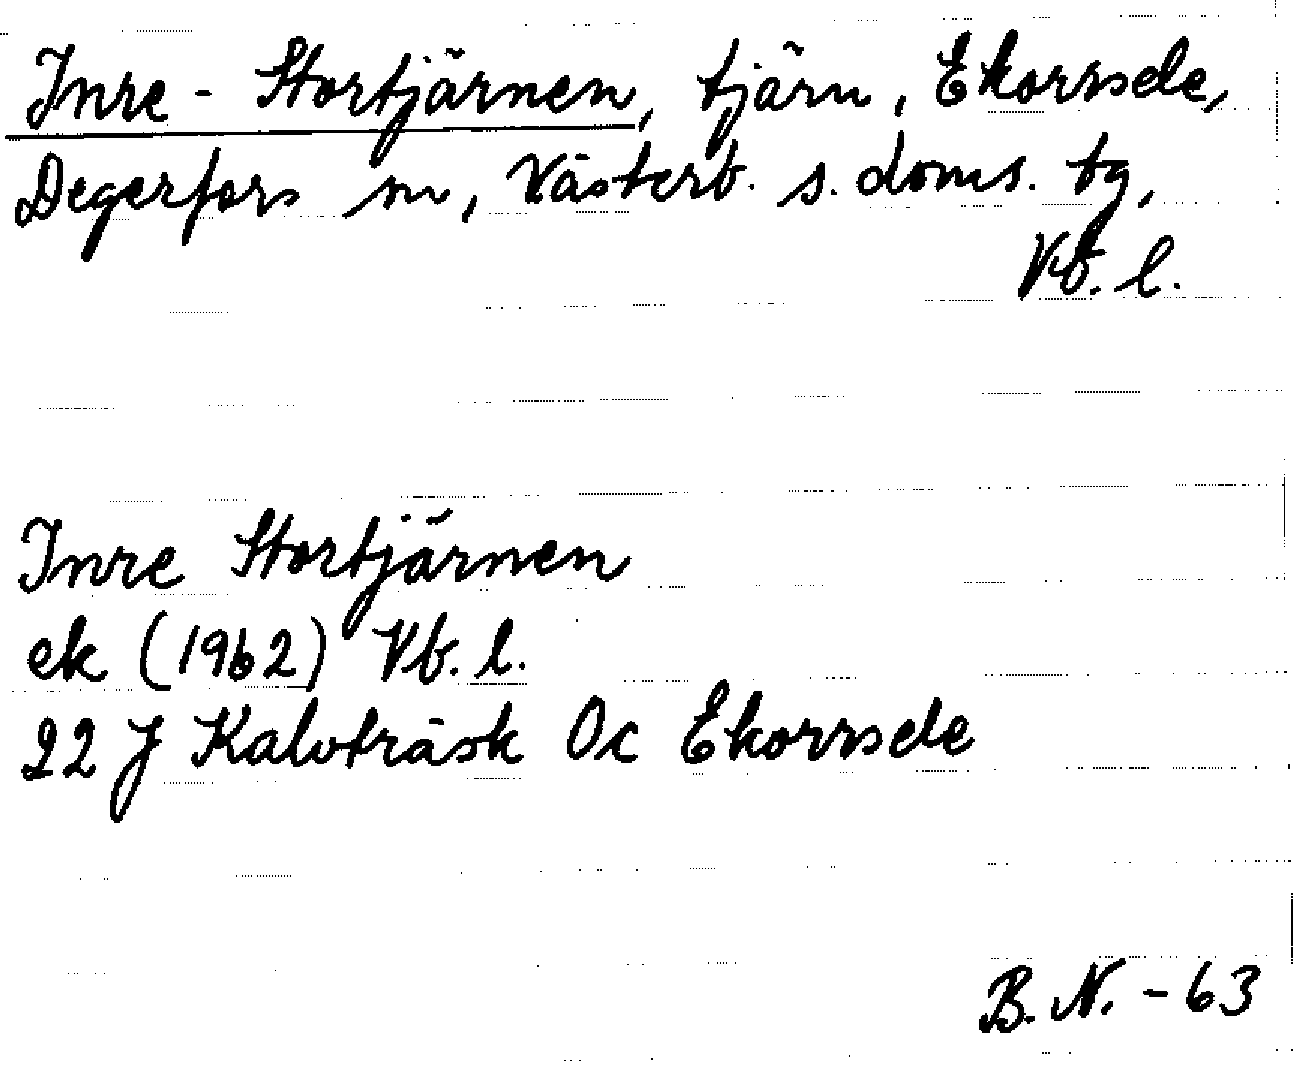 Inre-Stortjärnen, tjärn, Ekorrsele,
Degerfors sn, Västerb. s. doms. tg,
Vb. l.
Inre Stortjärnen
ek (1962) Vb. l.
22 J Kalvträsk Oc Ekorrsele
B. N. - 63